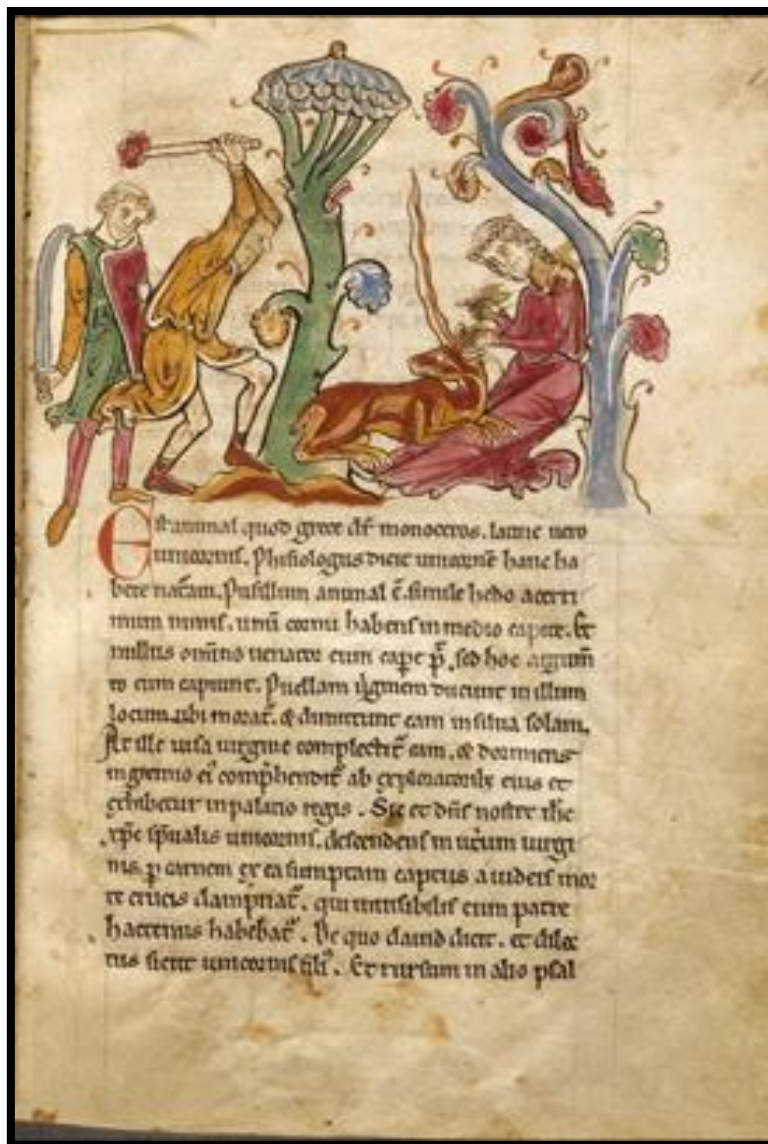 Est animal quod grece dr̄ monoceros. latine uero
unicornis. Phisiologus dicit unicornē hanc ha
bere nat̄am. Pusillum animal ē. simile hedo acerri
mum nimis. unū cornu habens in medio capite. Et
nullus om̄ino uenator eum cape p̄. sed hoc argum̄
to eum capiunt. Puellam uginem ducunt in illum
locum ubi morat̄. & dimittunt eam in silua solam.
At ille uisa uirgine complectit̄ eam. & dormiens
in gremio ei' comp̄hendit̄ ab exploratorib; eius et
exhibetur in palatio regis. Sic et dn̄s noster ih̄c
xp̄c sp̄ualis unicornis. descendens in ut̄um uirgi
nis. p carnem ex ea sumptam captus a iudeis mor
te crucis dampnat̄. qui inuisibilis cum patre
hactenus habebat̄. De quo dauid dicit. et dilec
tus sicut unicornis fili'. Et rursum in alio psal